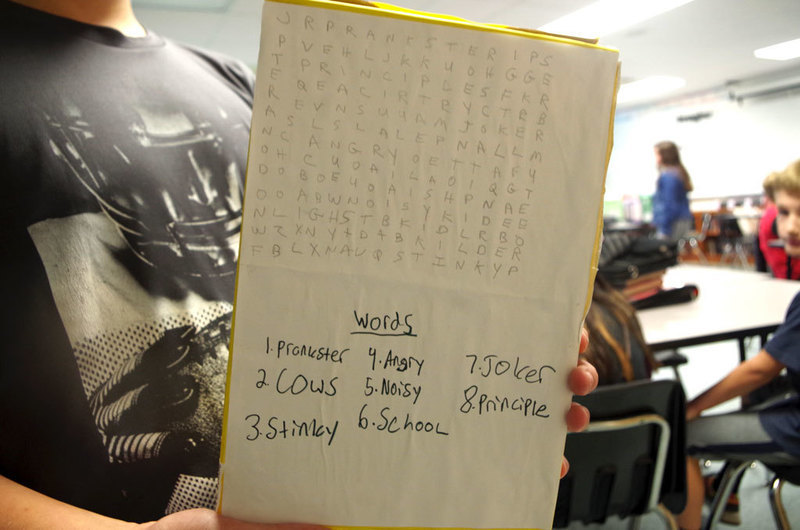 J R P R A N K S T E R I P S
P V E H L J K K U O H G G E
T P R I N C I P L E S F K R
E Q E A C I R T R Y C T R B
R E V N S U U A M J O K E R
A S L S L A L E P N A L L M
N C A N G R Y O E T T A F Y
O H C U O A I L A O I Q G T
D O B O E U O A I S H P N A E
O O A B W N O I S Y K I D E E
N L I G H S T B K I D L R B O
W Z X N Y t D t B K I L D E R
F B L X N A U Q S T I N K Y P
Words
1. Prankster 4. Angry 7. Joker
2. Cows 5. Noisy 8. Principle
3. Stinky 6. School